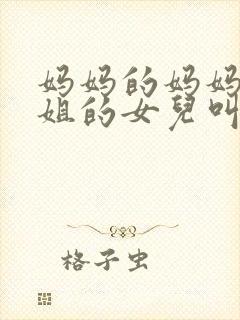 妈妈的妈妈
姐的女兒叫
格子虫